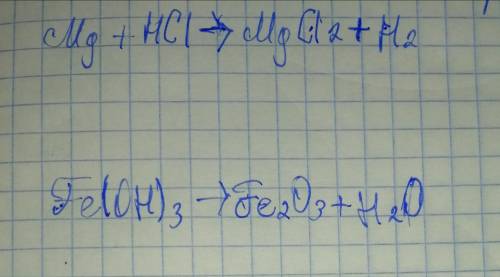 Mg + HCl → MgCl2 + H2
Fe(OH)3 → Fe2O3 + H2O